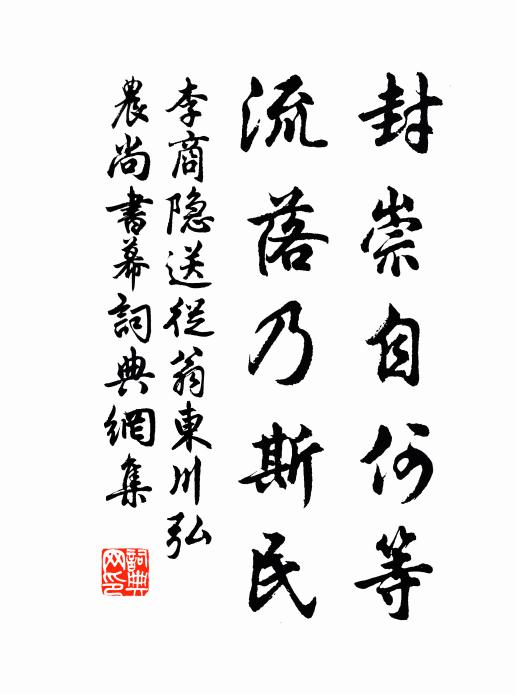 封崇自何等
流落乃斯民
李商隐送從翁東川弘
農尚書幕詞典網集
詞典网印